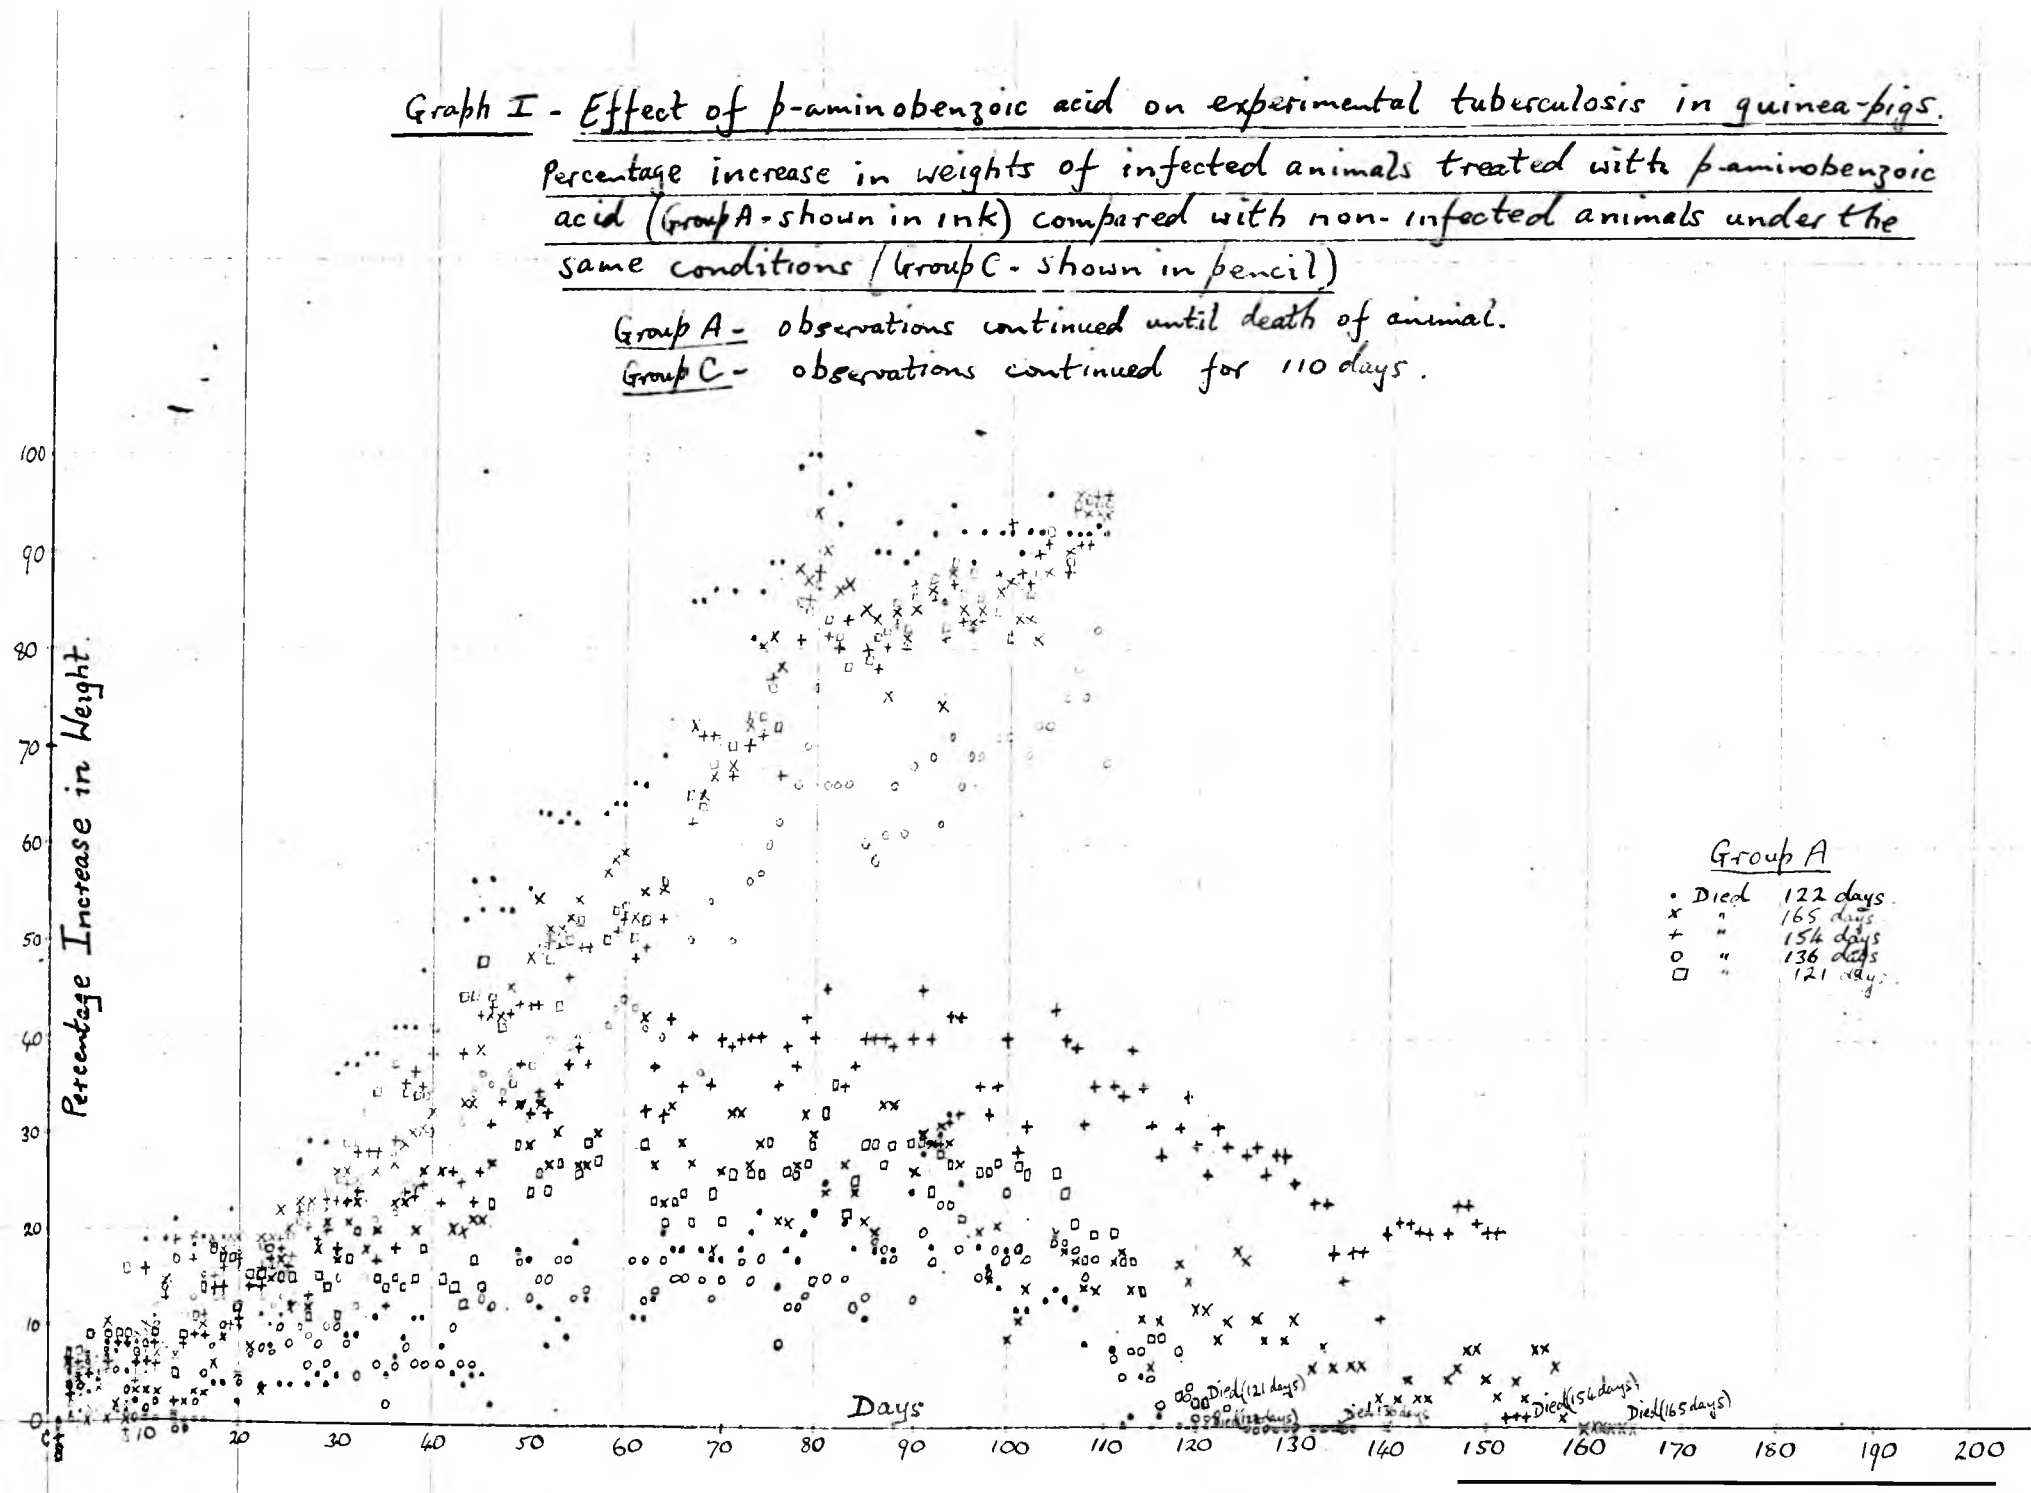 Graph I - Effect of p-aminobenzoic acid on experimental tuberculosis in guinea-pigs.
Percentage increase in weights of infected animals treated with p-aminobenzoic
acid (Group A - shown in ink) compared with non-infected animals under the
same conditions (Group C - shown in pencil)
Group A - observations continued until death of animal.
Group C - observations continued for 110 days.
100
90
80
70
60
50
40
30
20
10
0
Percentage Increase in Weight.
Group A
. Died 122 days.
x " 165 days
+ " 154 days
o " 136 days
□ " 121 days.
Days
Died (121 days)
Died (122 days)
Died 136 days
Died (154 days)
Died (165 days)
10 20 30 40 50 60 70 80 90 100 110 120 130 140 150 160 170 180 190 200